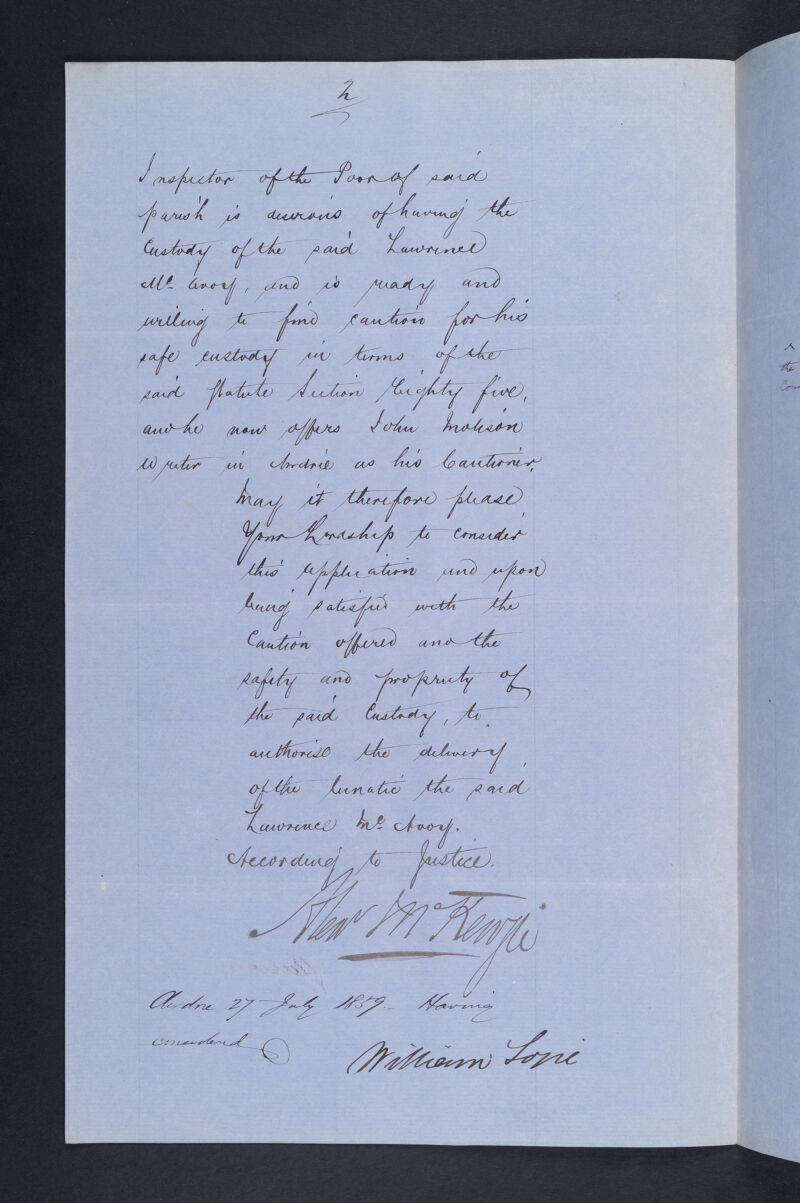 2
Inspector of the Poor of said
parish is desirous of having the
Custody of the said Lawrence
Mc Avoy, and is ready and
willing to find caution for his
safe custody in terms of the
said Statute Section Eighty five,
and he now offers John Motison
Writer in Airdrie as his Cautioner.
May it therefore please
Your Lordship to consider
this application and upon
being satisfied with the
Caution offered and the
safety and propriety of
the said Custody, to
authorise the delivery
of the lunatic the said
Lawrence Mc Avoy.
According to Justice.
Alexr McKenzie
Airdrie 27 July 1859 - Having
considered
William Logie
the